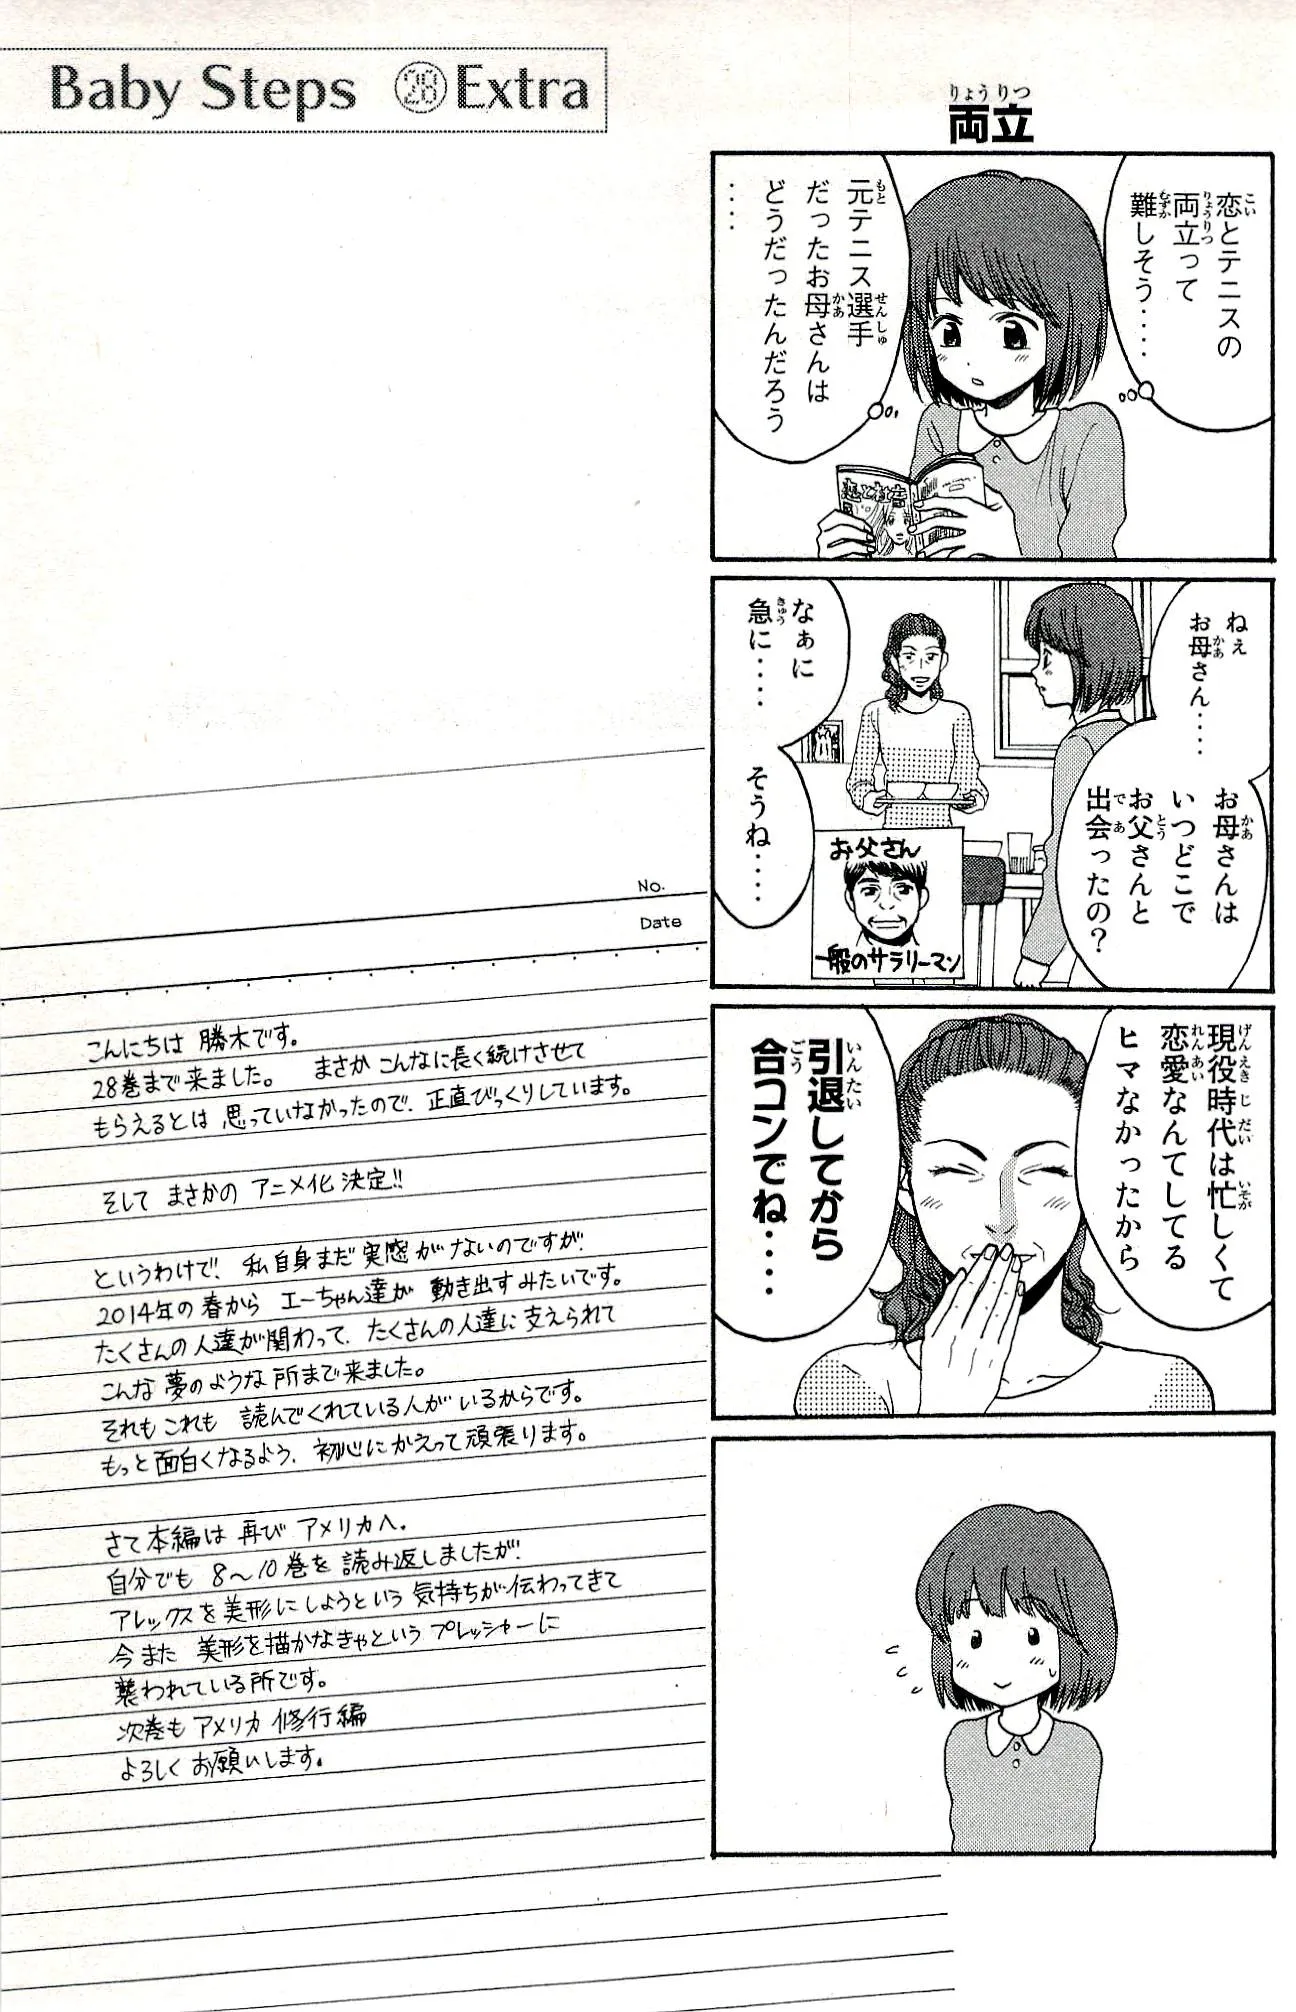 Baby Steps 28 Extra
両立
恋とテニスの
両立って
難しそう‥‥
元テニス選手
だったお母さんは
どうだったんだろう
‥‥
ねぇ
お母さん‥‥
お母さんは
いつどこで
お父さんと
出会ったの?
なぁに
急に‥‥
そうね‥‥
お父さん
一般のサラリーマン
現役時代は忙しくて
恋愛なんてしてる
ヒマなかったから
引退してから
合コンでね‥‥
No.
Date
こんにちは 勝木です。
28巻まで来ました。 まさか こんなに長く続けさせて
もらえるとは 思っていなかったので、正直びっくりしています。
そして まさかの アニメ化 決定!!
というわけで、私自身まだ 実感がないのですが、
2014年の 春から エーちゃん達が 動き出すみたいです。
たくさんの人達が関わって、たくさんの人達に支えられて
こんな 夢のような 所まで来ました。
それも これも 読んでくれている人が いるからです。
もっと面白くなるよう、初心にかえって頑張ります。
さて本編は 再び アメリカへ。
自分でも 8〜10巻を 読み返しましたが、
アレックスを美形にしようという 気持ちが伝わってきて
今また 美形を描かなきゃという プレッシャーに
襲われている所です。
次巻も アメリカ 修行編
よろしく お願いします。